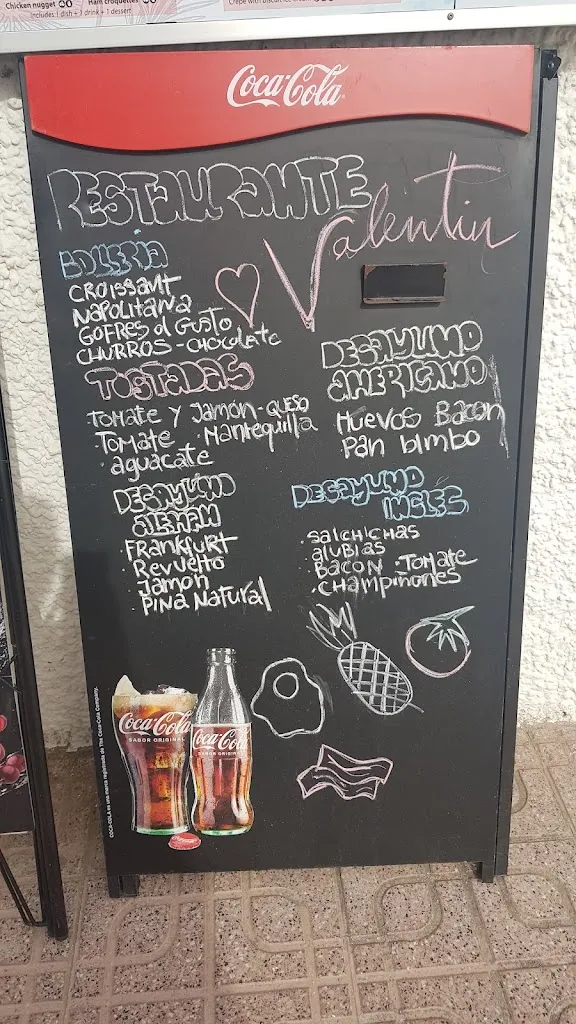 Chicken nugget
Ham croquettes
Includes 1 dish + 1 drink + 1 dessert
Coca-Cola
RESTAURANTE
Valentin
BOLLERIA
CROISSANT
NAPOLITANA
GOFRES al GUSTO
CHURROS - CHOCOLATE
TOSTADAS
TOMATE Y JAMÓN - QUESO
TOMATE · MANTEQUILLA
· aguacate
DESAYUNO
ALEMAN
· FRANKFURT
· Revuelto
Jamon
· PIÑA NATURAL
DESAYUNO
AMERICANO
Huevos Bacon
Pan bimbo
DESAYUNO
INGLES
· SALCHICHAS
alUBIAS
· BACON · TOMATE
· CHAMPIÑONES
Coca-Cola
SABOR ORIGINAL
Coca-Cola
SABOR ORIGINAL
COCA-COLA es una marca registrada de The Coca-Cola Company.